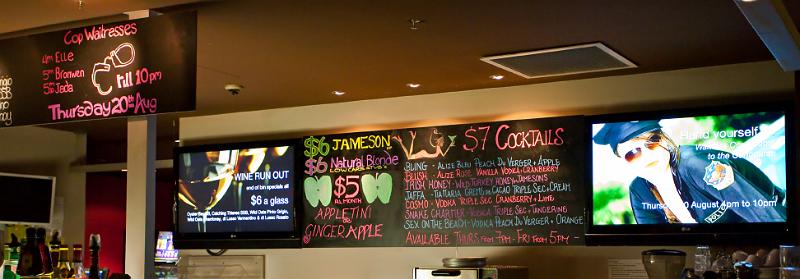 Cop Waitresses
4pm Elle
5pm Bronwen
5pm Jada
till 10pm
Thursday 20th Aug
WINE RUN OUT
end of bin specials all
$6 a glass
$6 JAMESON
$6 Natural Blonde
$5
ALL MONTH
APPLETINI
or
GINGERAPPLE
$7 COCKTAILS
BLING - ALIZE BLEU PEACH DU VERGER + APPLE
BLUSH - ALIZE ROSE VANILLA VODKA + CRANBERRY
IRISH HONEY - WILD TURKEY HONEY + JAMESONS
JAFFA - TIA MARIA CREME DE CACAO TRIPLE SEC + CREAM
COSMO - VODKA TRIPLE SEC CRANBERRY + LIME
SNAKE CHARMER - VODKA TRIPLE SEC + TANGERINE
SEX ON THE BEACH - VODKA PEACH DU VERGER + ORANGE
AVAILABLE THURS FROM 7PM - FRI FROM 5PM
yourself
to the
August 4pm to 10pm